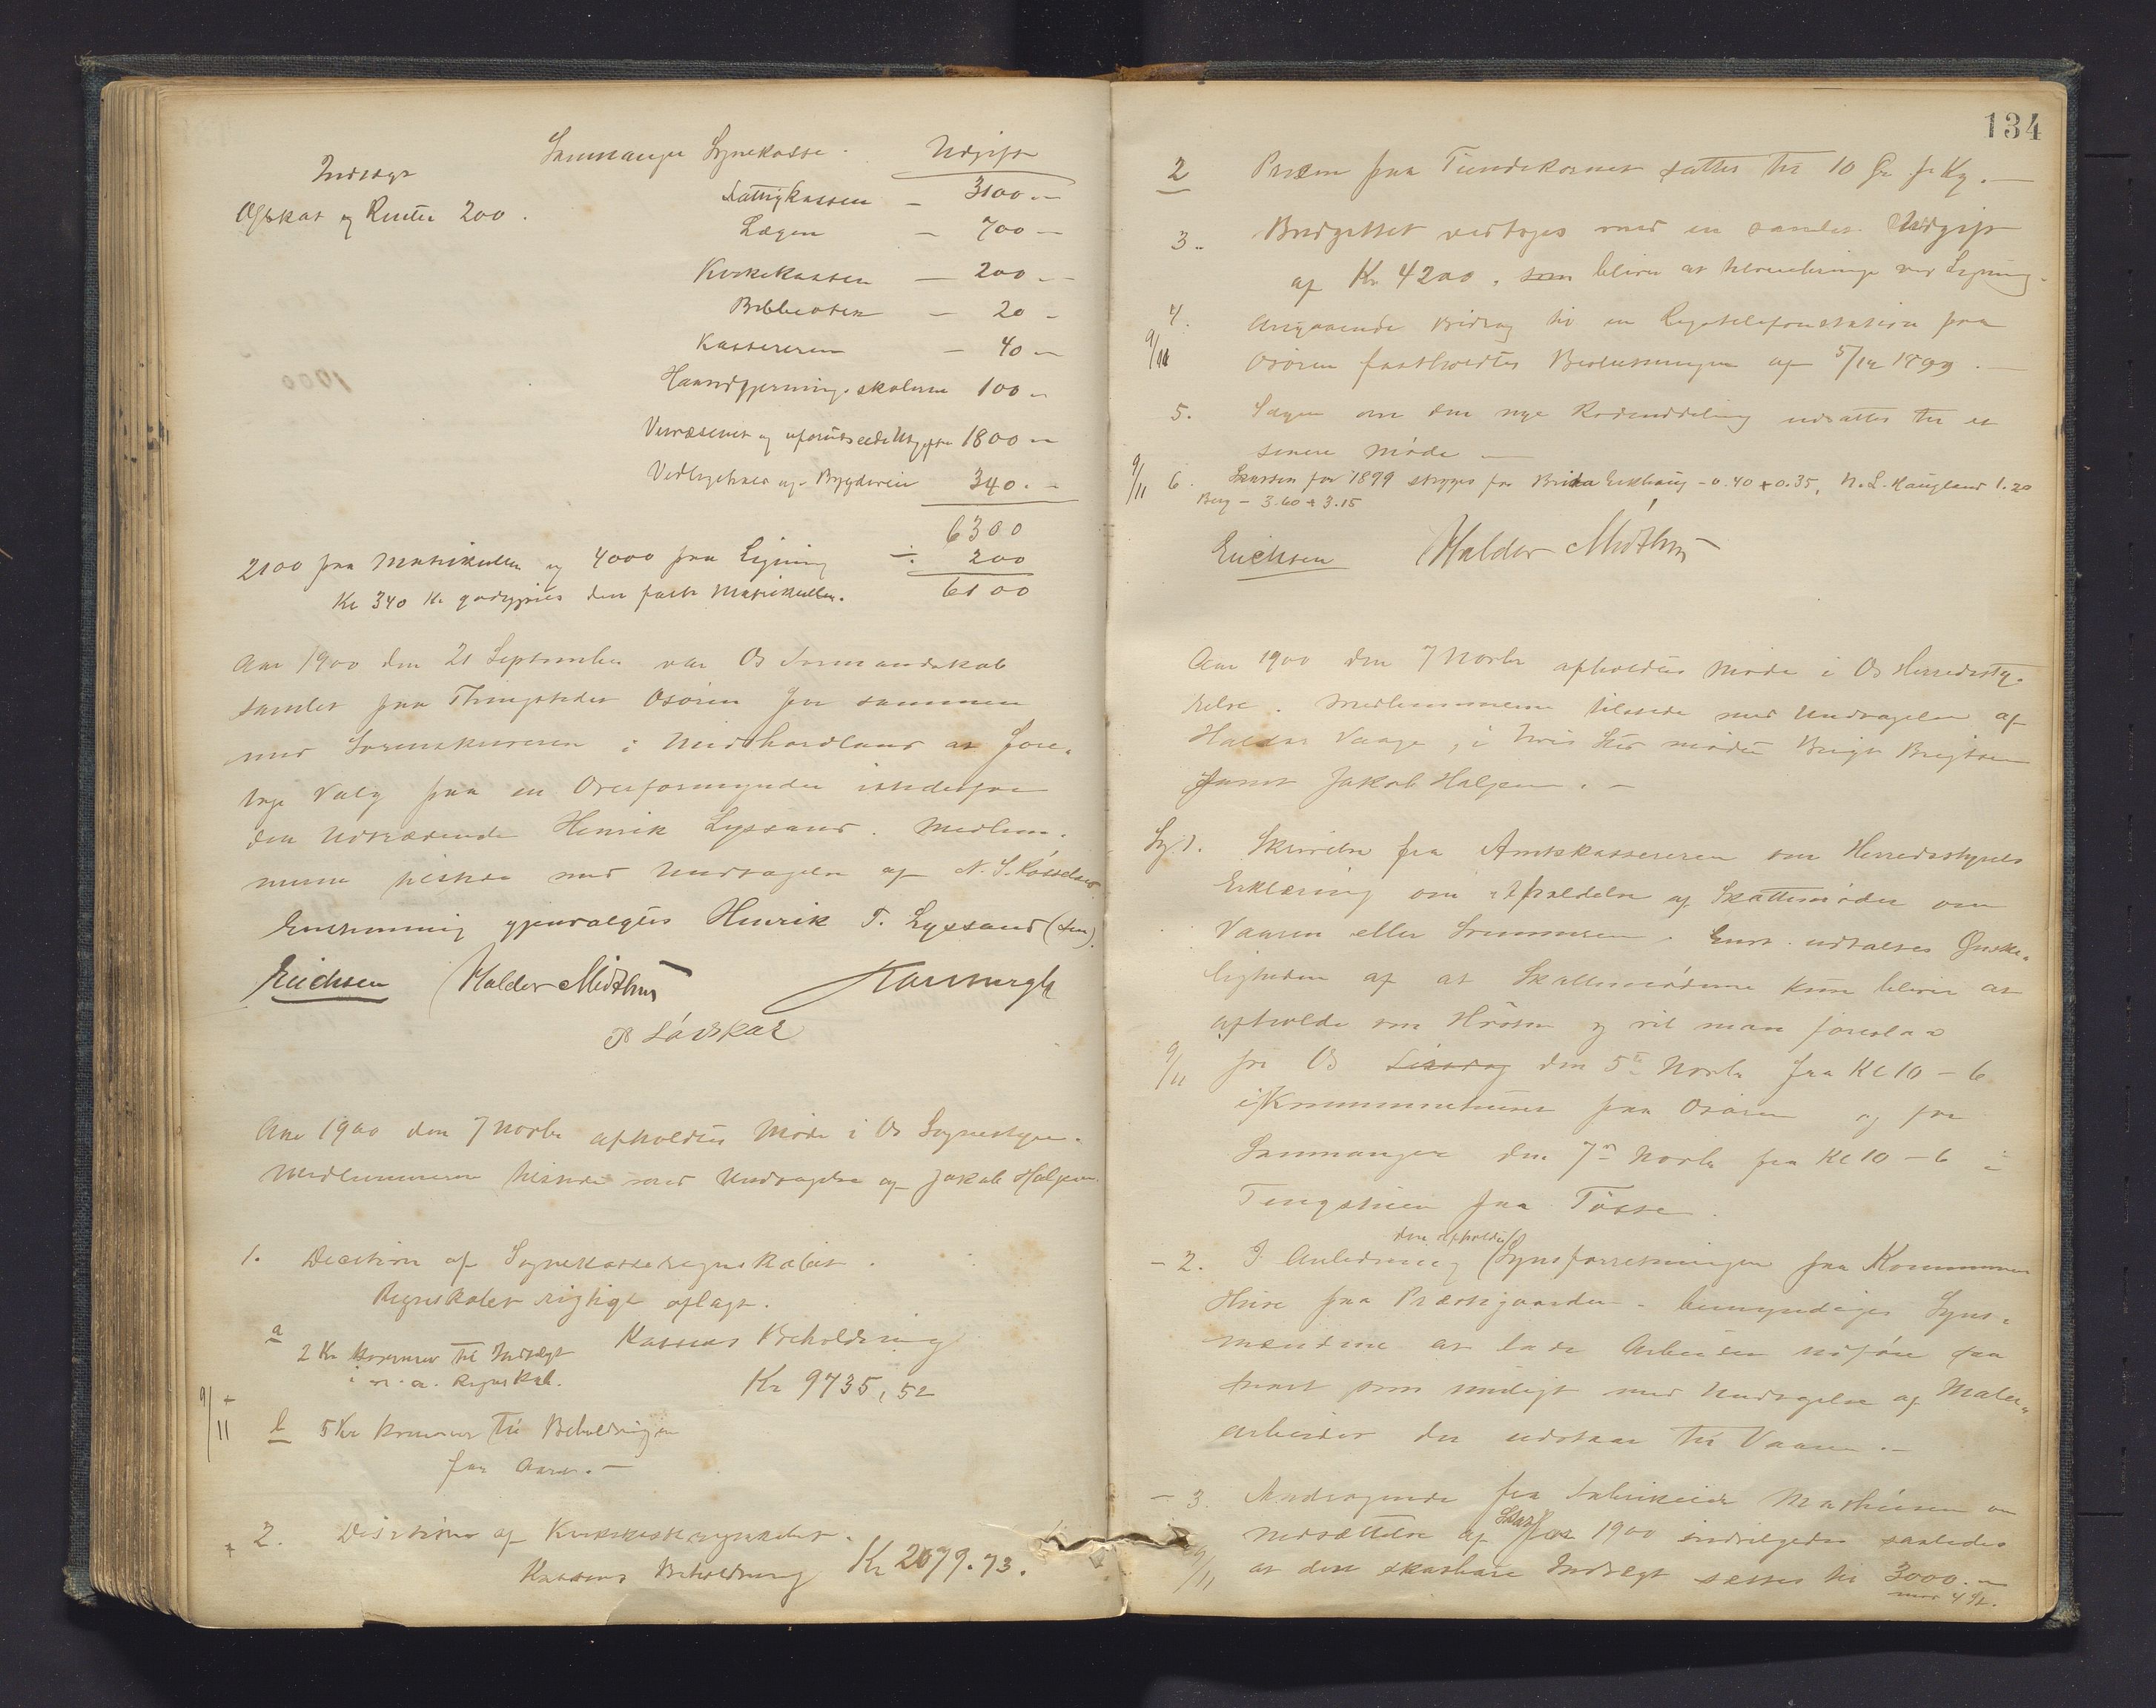 Samnanger Sognekasse.
Indtægt
Udgift
Afskat og Renter 200.
Fattigkassen – 3100 –
Lægen – 700 –
Kirkekassen – 200 –
Bibliotek – 20 –
Kassereren – 40 –
Haandgjernings skolerne 100 –
Veivæsenet og uforudseede Udgifter 1800 –
Vedligehold af Bygdeveie 340. –
6300
2100 paa Matrikulen og 4000 paa Ligning ÷ 200
Kr 340 Kr den faste Matrikullen. 6100
Aar 1900 den 21 September var Os Formandskab
samlet paa Thingstedet Osøren for sammen
med Sorenskriveren i Midthordland at fore-
tage Valg paa en Overformynder istedetfor
den udtrædende Henrik Lyssand. Medlem-
merne tilstede med Undtagelse af N. S.
Enstemmig gjenvalgtes Henrik T. Lyssand (sen).
Erichsen Haldor Midthus
Aar 1900 den 7 Novbr afholdtes Møde i Os Sognestyre.
Medlemmerne tilstede med Undtagelse af Jakob Haljem.
1. Decision af Sognekasseregnskabet.
Regnskabet rigtigt aflagt.
a
2 Kr kommer til Indtægt
i n. a. Regnskab.
Kassens Beholdning
Kr 9735,52
9/11 b 5 Kr kommer til Beholdningen
fra Aaret. –
2. Desision af Kirkekasseregnskabet.
Kassens Beholdning Kr 2079.73.
134
2 Prisen paa Tiendekornet sattes til 10 Øre pr Kg. –
3.. Budgettet vedtoges med en samlet Udgift
af Kr 4200, som bliver at tilveiebringe ved Ligning.
4. Angaaende Bidrag til en Rigstelefonstation paa
9/11 Osøren fastholdtes Beslutningen af 5/12 1899. –
5. Sagen om den nye Rodeinddeling udsattes til et
senere Møde –
9/11 6. Skatten for 1899 stryges for Brita – 0.40 + 0.35, N. L. Haugland 1.20
Berg – 3.60 + 3.15
Erichsen Haldor Midthus
Aar 1900 den 7 Novbr afholdtes Møde i Os Herredssty-
relse. Medlemmerne tilstede med Undtagelse af
Haldor Vaage, i hvis Sted mødte Brigt Brigtsen
samt Jakob Haljem. –
Sag 1. Skrivelse fra Amtskassereren om Herredsstyrets
Erklæring om Afholdelse af Skattemøder om
Vaaren eller Sommeren. Enst. udtaltes Ønske-
ligheden af at Skattemøderne kun bliver at
afholde om Høsten og vil man foreslaa
9/11 for Os den 5te Novbr fra Kl 10 – 6
i Kommunehuset paa Osøren og for
Samnanger den 7de Novbr fra Kl 10 – 6 i
Tingstuen paa Tøsse.
den afholdte
– 2. I Anledning Synsforretningen paa Kommunens
Huse paa Præstegaarden bemyndiges Syns-
mændene at lade Arbeidet udføre saa
snart som muligt med Undtagelse af Maler-
arbeidet der udstaar til Vaaren. –
– 3. Andragende fra Fabrikeier Mathiesen om
Nedsættelse af Skat for 1900 indvilgedes saaledes
9/11 at den skatbare Indtægt sættes til 3000. –
med 4 St.